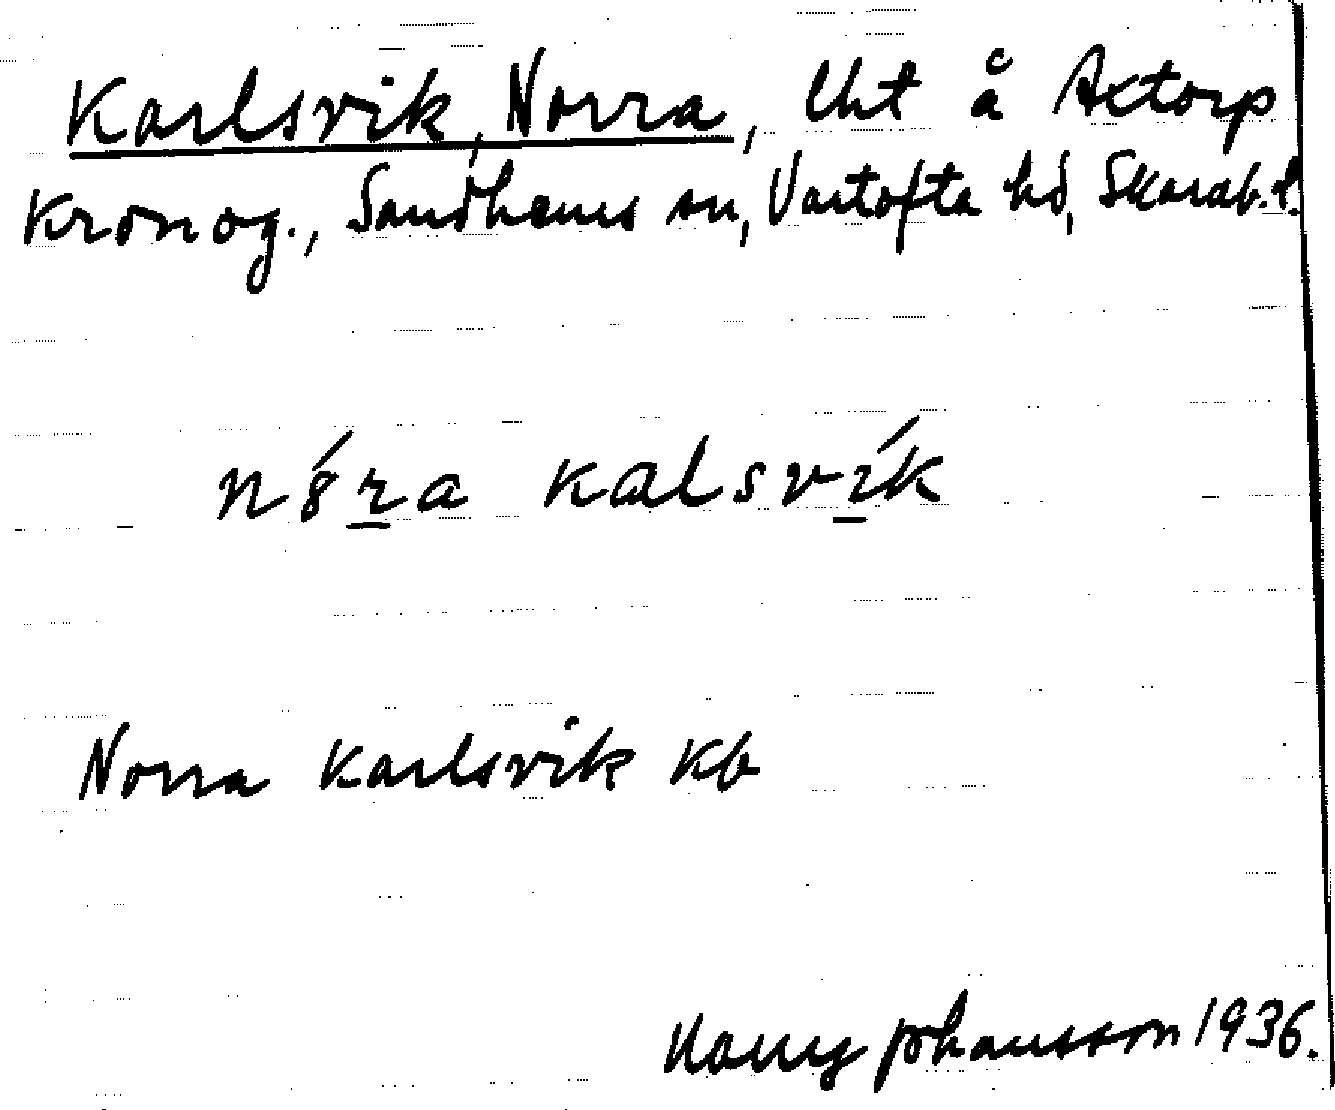 Karlsvik, Norra, lht å Axtorp
Kronog., Sandhems sn, Vartofta hd, Skarab. l.
nǿra kalsvík
Norra Karlsvik kb
Harry Johansson 1936.